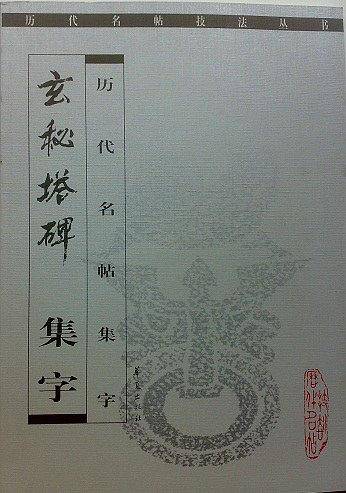 历代名帖技法丛书
玄秘塔碑 集字
历代名帖集字